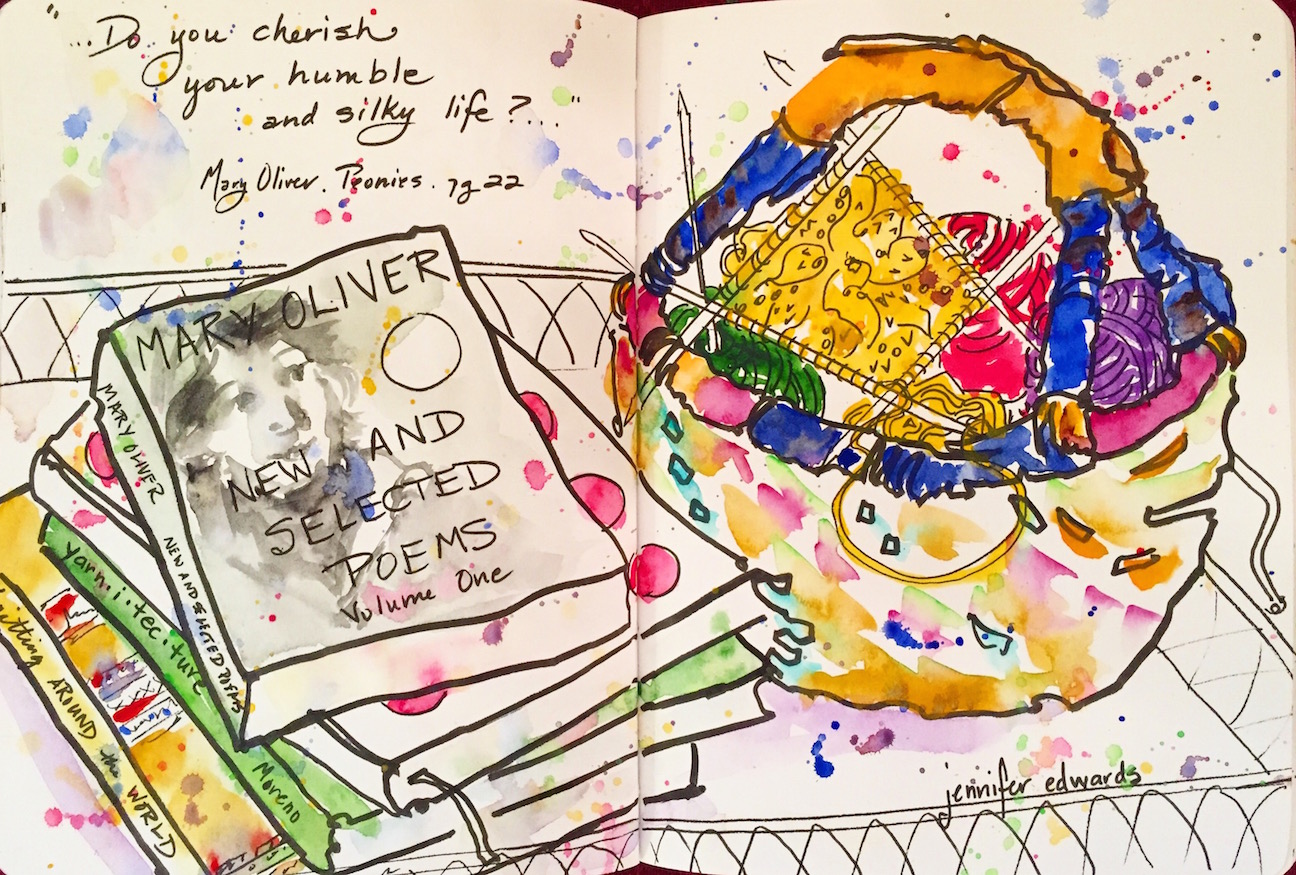 "...Do you cherish
your humble
and silky life?..."
Mary Oliver. Peonies. pg 22
MARY OLIVER
NEW AND
SELECTED
POEMS
Volume One
MARY OLIVER NEW AND SELECTED POEMS
yarn.i.tec.ture Moreno
knitting AROUND the WORLD
jennifer edwards